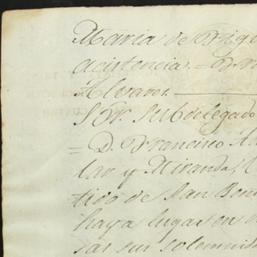 Maria de
acistencia =
Alvarez
Sor. Subdelegado
= D. Francisco
lar y Miranda,
tico de San
haya lugar en
das sus solemni